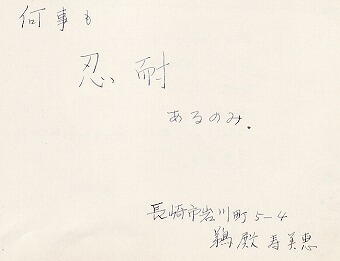 何事も
忍耐
あるのみ.
長崎市岩川町5-4
鵜殿寿美恵